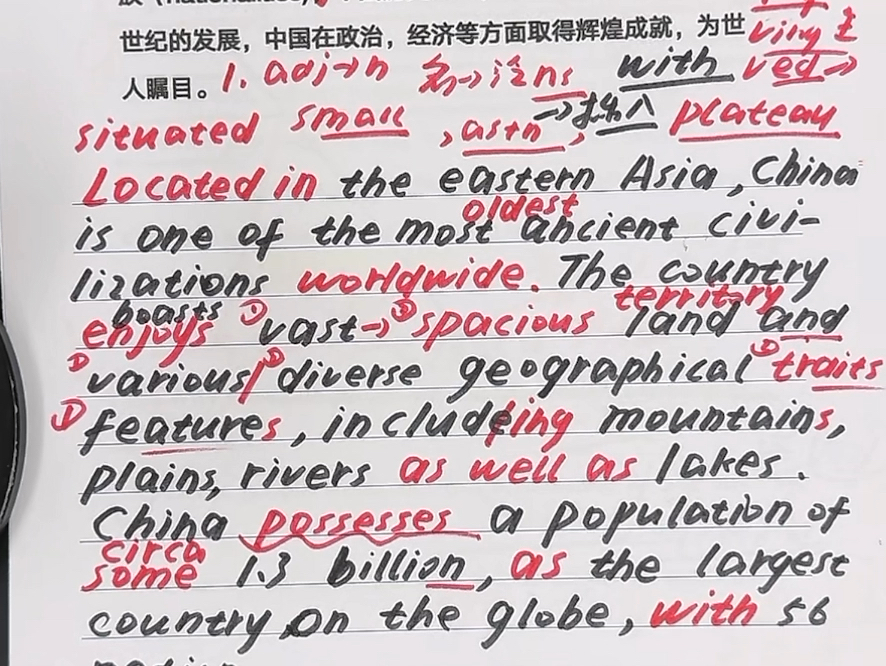 世纪的发展，中国在政治，经济等方面取得辉煌成就，为世
人瞩目。 1. adj→n 名→泛 ns with ved→
situated small , as+n →插入, plateau
Located in the eastern Asia, China
oldest
is one of the most ancient civi-
lizations worldwide. The country
boasts territory
enjoys ① vast→② spacious land and
① various/② diverse geographical ② traits
① features, including mountains,
plains, rivers as well as lakes.
China possesses a population of
circa
some 1.3 billion, as the largest
country on the globe, with 56